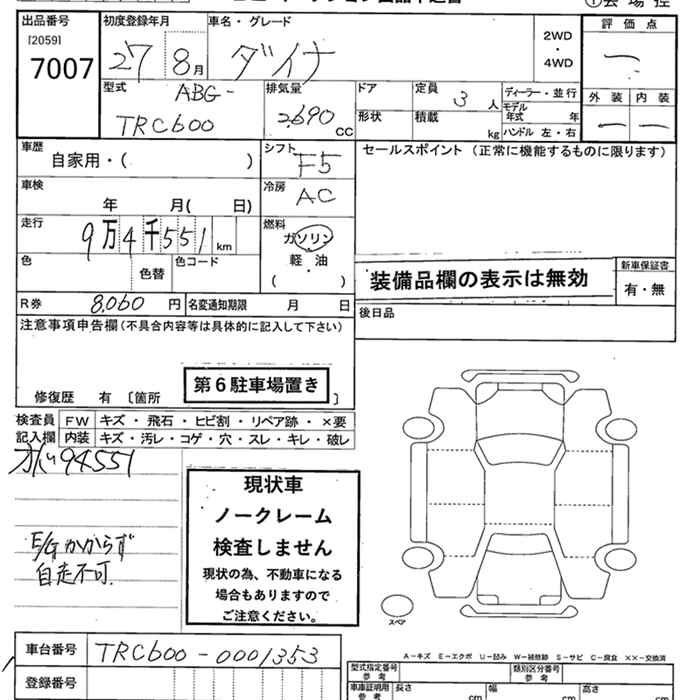 ① 会場控
出品番号
[2059]
7007
初度登録年月
27 8月
車名・グレード
ダイナ
2WD
・
4WD
評価点
一
外装 内装
一 一
型式
ABG-
TRC600
排気量
2690 CC
ドア
形状
定員 3 人
積載 kg
ディーラー・並行
モデル
年式 年
ハンドル 左・右
車歴
自家用・( )
シフト
F5
セールスポイント(正常に機能するものに限ります)
車検
年 月( 日)
冷房
AC
走行
9万4千551 km
燃料
ガソリン
軽・油
( )
色
色替
色コード
装備品欄の表示は無効
新車保証書
有・無
R券 8,060 円
名変通知期限 月 日
後日品
注意事項申告欄(不具合内容等は具体的に記入して下さい)
第6駐車場置き
修復歴 有 〔箇所 〕
検査員
記入欄
FW キズ・飛石・ヒビ割・リペア跡・×要
内装 キズ・汚レ・コゲ・穴・スレ・キレ・破レ
94551
E/Gかからず
自走不可
現状車
ノークレーム
検査しません
現状の為、不動車になる
場合もありますので
ご注意ください。
スペア
A-キズ E-エクボ U-凹み W-補修跡 S-サビ C-腐食 ××-交換済
車台番号 TRC600-0001353
登録番号
型式指定番号
参考
類別区分番号
参考
車庫証明用
参考
長さ cm
幅 cm
高さ cm